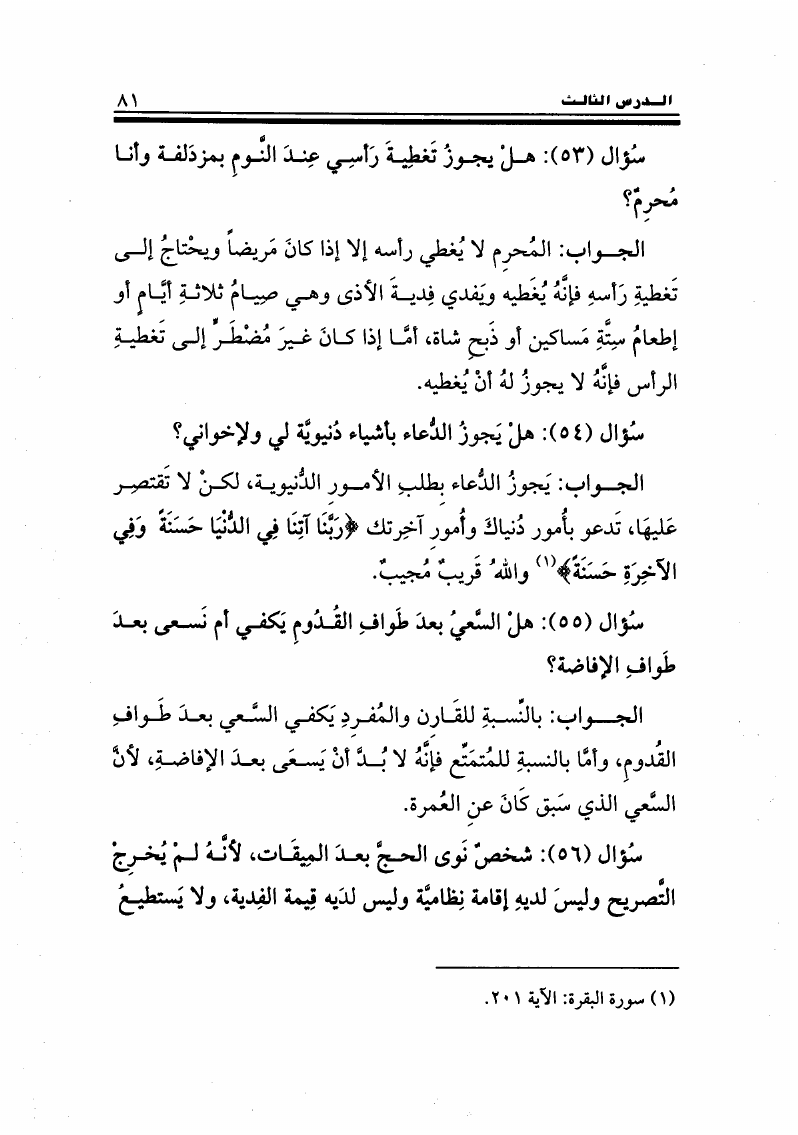 الـدرس الثالـث
٨١
سُؤال (٥٣): هـلْ يجـوزُ تَغطِيـةَ رَأسِـي عِنـدَ النَّـومِ بمزدَلفـة وأنـا
مُحرِمٌ؟
الجـواب: المُحرِم لا يُغطي رأسه إلا إذا كانَ مَريضاً ويحْتاجُ إلـى
تَغطيةِ رَأسهِ فإنَّهُ يُغَطيه ويَفدي فِديـةَ الأذى وهـي صِيـامُ ثلاثـةِ أيَّـامٍ أو
إطعامُ سِتَّةِ مَساكين أو ذَبحِ شاة، أمَّـا إذا كـانَ غـيرَ مُضْطَـرٍّ إلـى تَغطيـةِ
الرأس فإنَّهُ لا يجوزُ لهُ أنْ يُغطيه.
سُؤال (٥٤): هلْ يَجوزُ الدُّعاء بأشياء دُنيويَّة لي ولإخواني؟
الجـواب: يَجوزُ الدُّعاء بطلبِ الأمـور الدُّنيويـة، لكـنْ لا تَقتصِـر
عَليهَا، تَدعو بأُمور دُنياكَ وأُمورِ آخرتك ﴿رَبَّنَا آتِنَا فِي الدُّنْيَا حَسَنَةً وَفِي
الآخِرَةِ حَسَنَةً﴾(١) واللهُ قَريبٌ مُجيبٌ.
سُؤال (٥٥): هلْ السَّعيُ بعدَ طَوافِ القُـدُومِ يَكفـي أم نَسـعى بعـدَ
طَوافِ الإفاضة؟
الجـواب: بالنِّسبةِ للقَـارن والمُفـرِدِ يَكفـي السَّـعي بعـدَ طَـوافِ
القُدومِ، وأمَّا بالنسبةِ للمُتمَتِّع فإنَّهُ لا بُـدَّ أنْ يَسـعَى بعـدَ الإفاضـةِ، لأنَّ
السَّعي الذي سَبق كَانَ عنِ العُمرة.
سُؤال (٥٦): شخصٌ نَوى الحـجَّ بعـدَ المِيقَـات، لأنَّـهُ لـمْ يُخـرِجْ
التَّصريح وليسَ لديهِ إقامة نِظاميَّة وليس لدَيه قِيمة الفِدية، ولا يَستطيـعُ
(١) سورة البقرة: الآية ٢٠١.